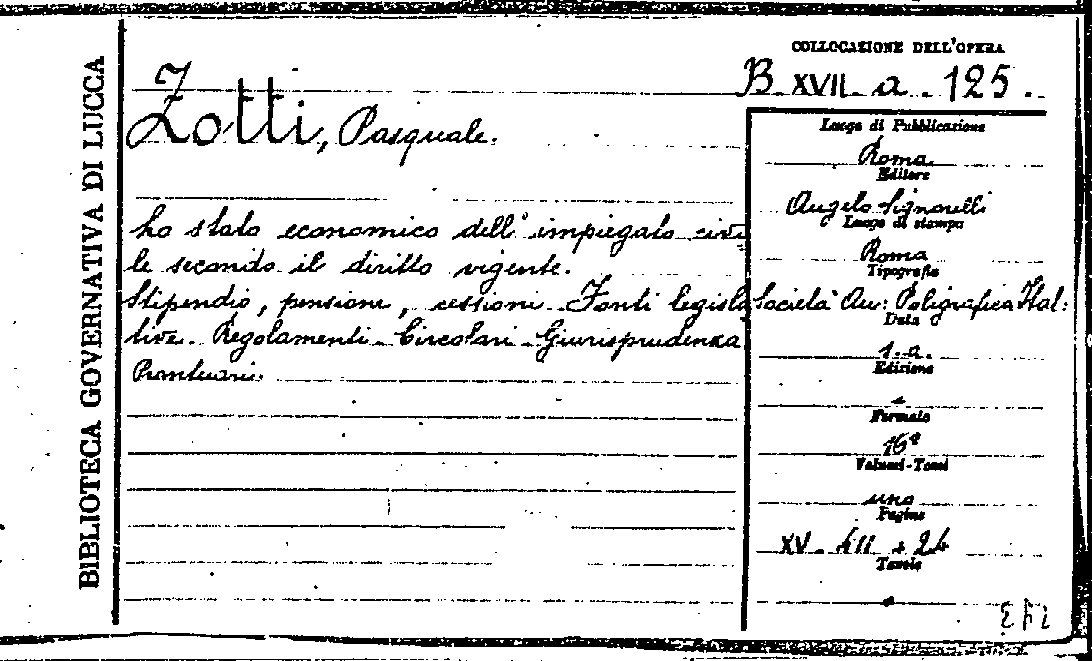 BIBLIOTECA GOVERNATIVA DI LUCCA
COLLOCAZIONE DELL'OPERA
B. XVII. a. 125.
Zotti, Pasquale.
Lo stato economico dell'impiegato civi
le secondo il diritto vigente.
Stipendio, pensione, cessioni. Fonti legisla
tive. Regolamenti. Circolari. Giurisprudenza
Prontuari.
Luogo di Pubblicazione
Roma
Editore
Angelo Signorelli
Luogo di stampa
Roma
Tipografia
Società An: Poligrafica Ital:
Data
s.a.
Edizione
Formato
16°
Volumi-Tomi
uno
Pagine
XV. 411 + 24
Tavole